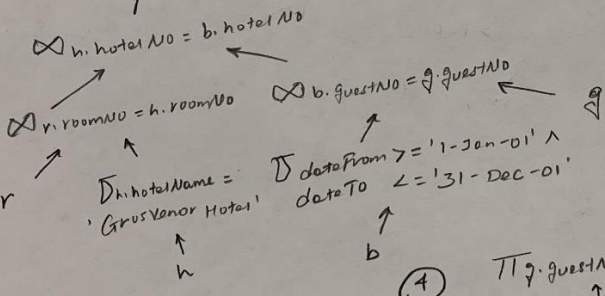 ⋈ h.hotelNo = b.hotelNo
⋈ r.roomNo = h.roomNo
⋈ b.guestNo = g.guestNo
g
r
σ h.hotelName =
'Grosvenor Hotel'
σ dateFrom >= '1-Jan-01' ∧
dateTo <= '31-Dec-01'
h
b
4
Π g.guestN